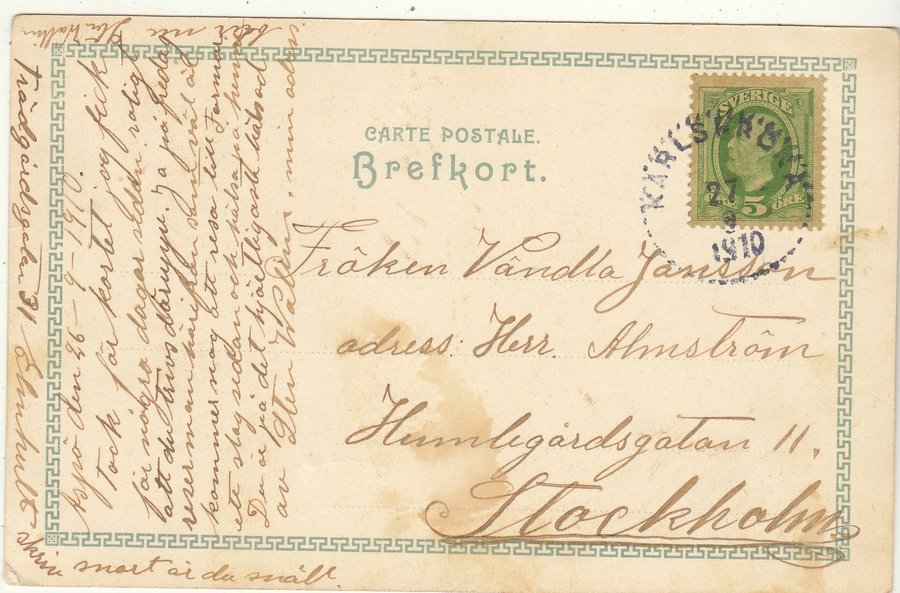 CARTE POSTALE.
Brefkort.
SVERIGE
5 ÖRE
KARLSKRONA
27
9
1910
Fröken Vändla Jansson
adress. Herr. Almström
Humlegårdsgatan 11.
Stockholm
Aspö den 26-9-1910.
Tack för kortet jag fick
för några dagar sedan. roligt
att du trivs däruppe. Ja på fredag
reser man härifrån
kommer nog att resa till
ett slag sedan och hälsa på
Du är på det hjärtligaste hälsad
av Sten Wallin. min adress
trädgårdsgatan 31 Älmhult
skriv snart är du snäll.
Sten Wallin